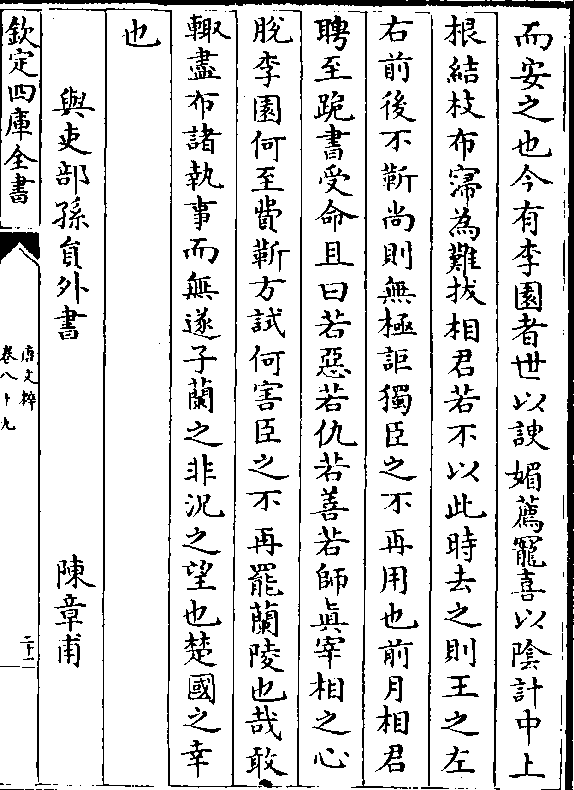 而安之也今有李園者世以諛媚薦寵喜以陰計中上
根結枝布寖為難拔相君若不以此時去之則王之左
右前後不靳尚則無極詎獨臣之不再用也前月相君
聘至跪書受命且曰若惡若仇若善若師真宰相之心
脫李園何至費靳方試何害臣之不再罷蘭陵也哉敢
輙盡布諸執事而無遂子蘭之非況之望也楚國之幸
也
與吏部孫員外書 陳章甫
欽定四庫全書
唐文粹
卷八十九
二十一